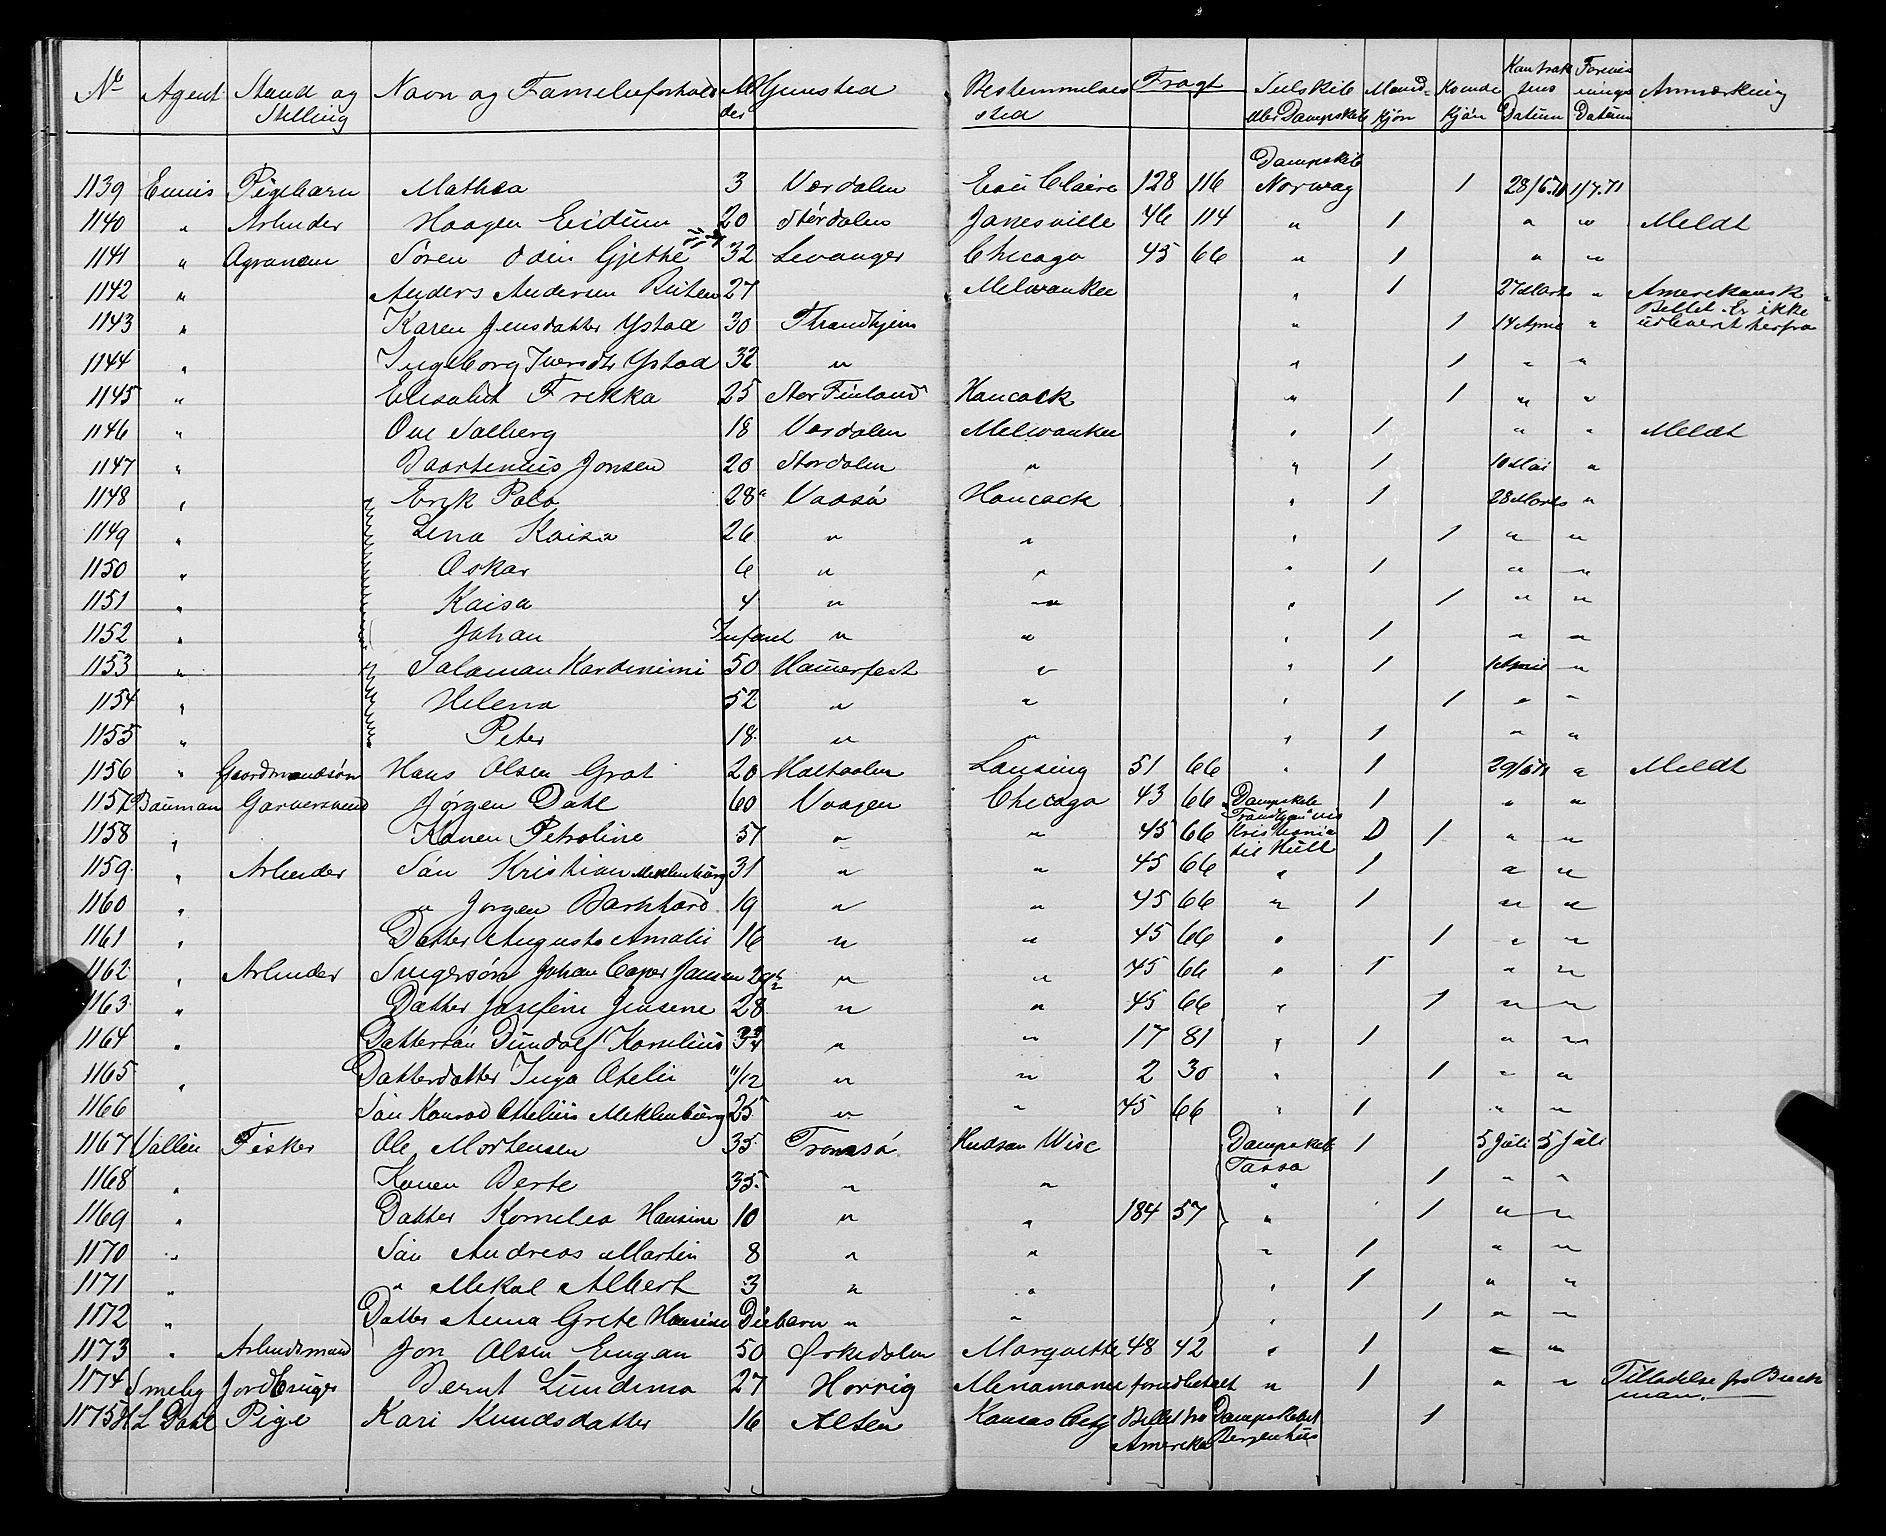 No Agent Stand og Stilling Navn og Familieforhold Alder Hjemsted Bestemmelsessted Fragt Seilskib eller Dampskib Mandkjøn Kvindekjøn Kontraktens Datum Forevisnings Datum Anmærkning
1139 Ennis Pigebarn Mathea 3 Værdalen Eau Claire 128 116 Dampskib Norway 1 28/6.71 1/7.71
1140 " Arbeider Haagen Eidum 20 Størdalen Janesville 46 114 " 1 " " Meldt
1141 " Agronom Sören Odin Gjethe 32 Levanger Chicago 45 66 " 1 " "
1142 " Anders Andersen 27 Melwaukee " 1 27 Marts " Amerikansk
1143 " Karen Jensdatter Ystad 30 Throndhjem " 1 14 April " Billet. Er ikke udleveret herfra
1144 " Ingeborg Iversdtr Ystad 32 " " 1 " "
1145 " Elisabet Frekka 25 Stor Finland Hancock " 1 " "
1146 " Ole Salberg 18 Værdalen Melwaukee " 1 " " Meldt
1147 " Jonsen 20 Stordalen " " 1 10 Mai "
1148 " Erik Palo 28 Vadsö Hancock " 1 28 Marts "
1149 " Lena Kaisa 26 " " " 1 " "
1150 " Oskar 6 " " " 1 " "
1151 " Kaisa 4 " " " 1 " "
1152 " Johan Infant " " " 1 " "
1153 " Salaman Kardinimi 50 Hamerfest " " 1 1 April "
1154 " Helena 52 " " " 1 " "
1155 " Peter 18 " " " 1 " "
1156 " Gaardmandsøn Hans Olsen Grøt 20 Holtaalen Lansing 51 66 " 1 29/6 71 " Meldt
1157 Bauman Garversvend Jørgen Dahl 60 Vaagen Chicago 43 66 Dampskib 1 " "
1158 " Konen Petroline 57 " " 45 66 "Trondhjem" via Kristiania til Hull 0 1 " "
1159 " Arbeider Sön Kristian Meklenburg 31 " " 45 66 " 1 " "
1160 " " Jörgen Barnhard 19 " " 45 66 " 1 " "
1161 " Datter Augusta Amalie 16 " " 45 66 " 1 " "
1162 " Arbeider Svigersön Johan Casper Jansen " " 45 66 " 1 " "
1163 " Datter Josefine Jensine 28 " " 45 66 " 1 " "
1164 " Dattersön Kornelius 3 3/4 " " 17 81 " 1 " "
1165 " Datterdatter Inga Otelie 11/12 " " 2 30 " 1 " "
1166 Sön Konrad Othelius Meklenburg 25 " " 45 66 " 1 " "
1167 Vallien Fisker Ole Mortensen 35 Tromsö Hudson Wisc Dampskib Tasso 1 5 Juli 5 Juli
1168 " Konen Berte 35 " " " 1 " "
1169 " Datter Kornelia Hansine 10 " " 184 57 " 1 " "
1170 " Sön Andreas Martin 8 " " " 1 " "
1171 " " Mekal Albert 3 " " " 1 " "
1172 " Datter Anna Grete Hansine Diebarn " " " 1 " "
1173 " Arbeidsmand Jon Olsen Engan 50 Ørkedalen Marquette 48 42 " 1 " "
1174 Smeby Jordbruger Bernt Lundemo 27 Horrig Menamonee forudbetalt " 1 " " Tilladelse fra Beckman.
1175 H L Dahl Pige Kari Knudsdatter 16 Alten Kansas City Billet fra Amerika Dampskibet Bergenhus 1